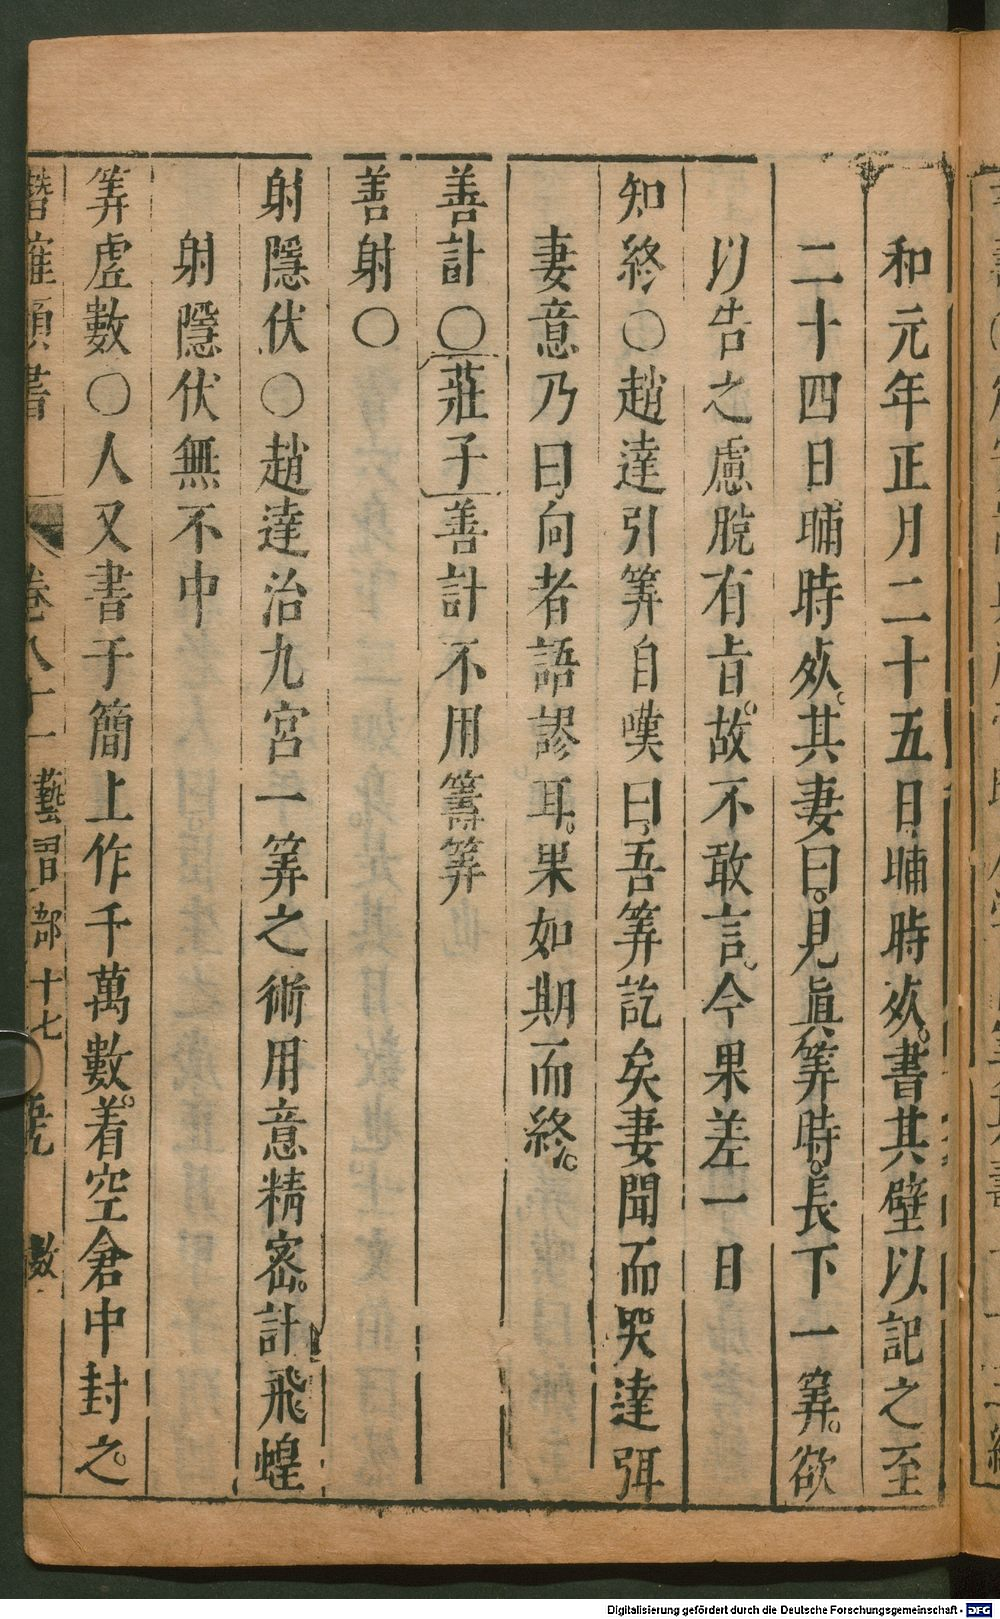 和元年正月二十五日晡時死書其壁以記之至
二十四日晡時死其妻曰見眞筭時長下一筭欲
以告之慮脫有旨故不敢言今果差一日
知終○趙達引筭自嘆曰吾筭訖矣妻聞而哭達弭
妻意乃曰向者語謬耳果如期而終
善計○莊子善計不用籌筭
善射○
射隱伏○趙達治九宮一筭之術用意精密計飛蝗
射隱伏無不中
筭虛數○人又書于簡上作千萬數着空倉中封之
潛確類書 卷八十一 藝習部十七 數
Digitalisierung gefördert durch die Deutsche Forschungsgemeinschaft - DFG